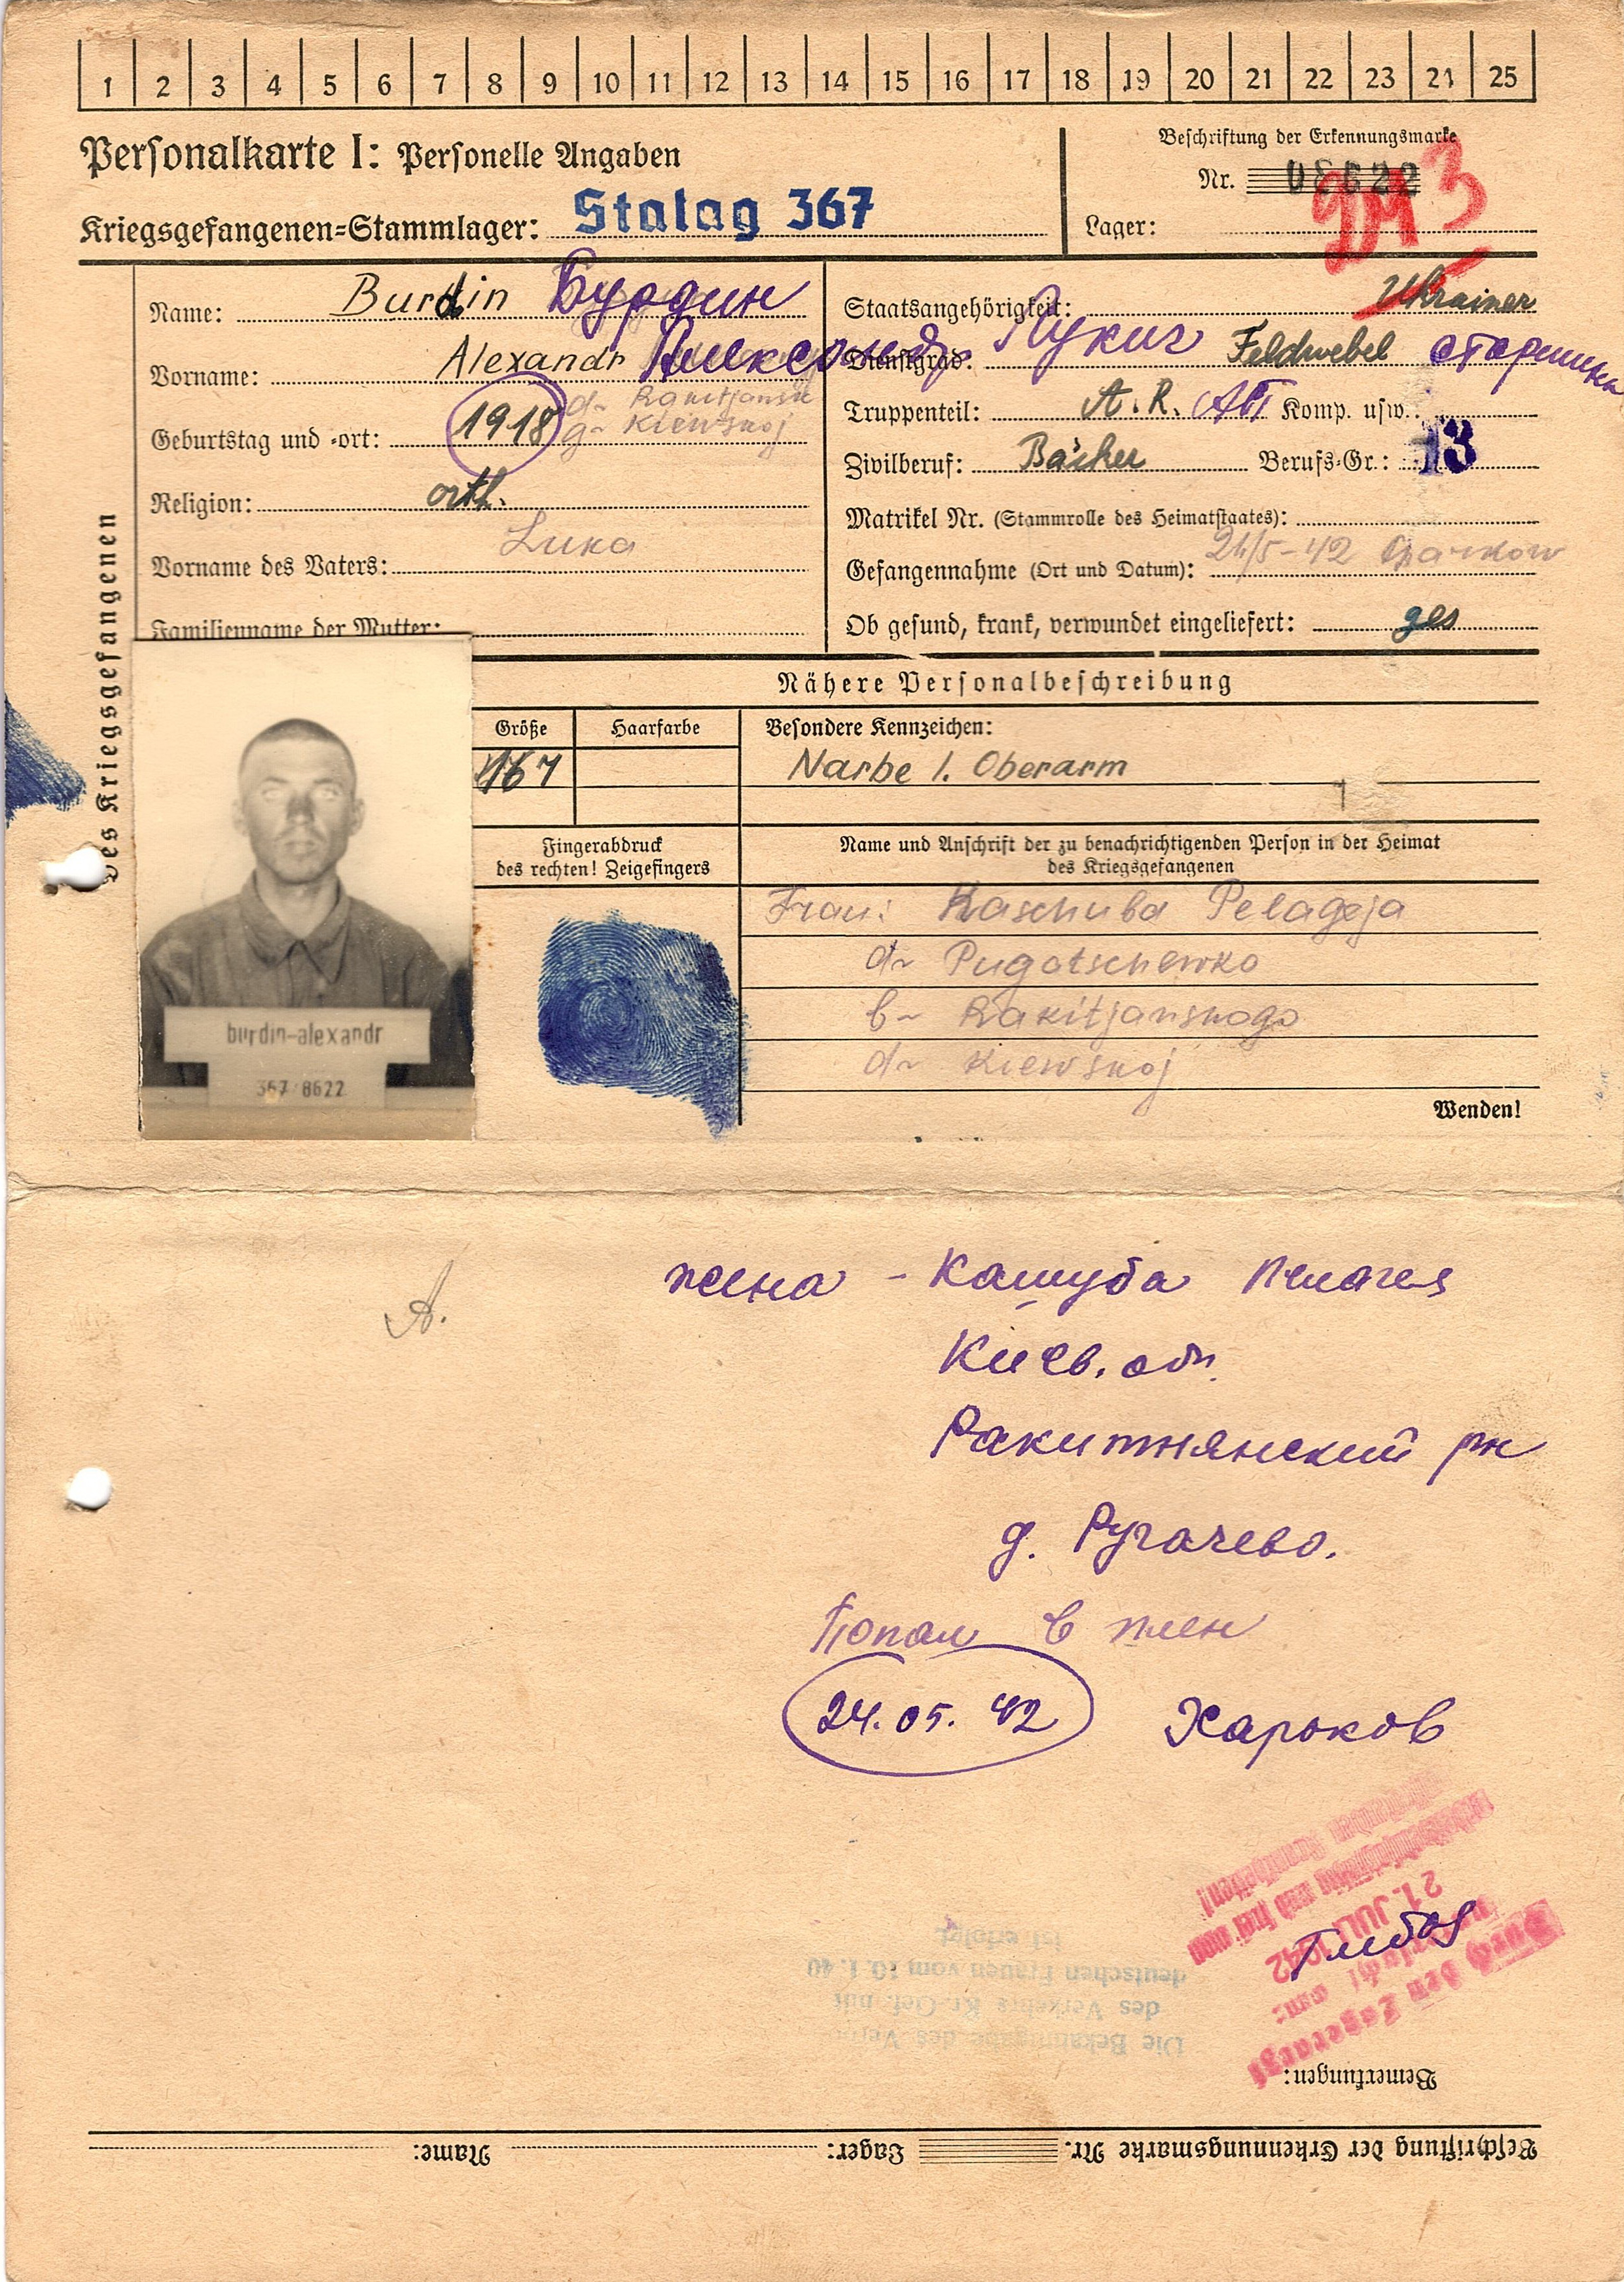 1 2 3 4 5 6 7 8 9 10 11 12 13 14 15 16 17 18 19 20 21 22 23 24 25
Personalkarte I: Personelle Angaben
Kriegsgefangenen-Stammlager: Stalag 367
Beschriftung der Erkennungsmarke
Nr. 08622
Lager:
des Kriegsgefangenen
Name: Burdin Бурдин
Vorname: Alexandr Александр Лукич
Geburtstag und -ort: 1918 d~ Rakitjansk
g~ Kiewskoj
Religion: orth.
Vorname des Vaters: Luka
Familienname der Mutter:
Staatsangehörigkeit: Ukrainer
Dienstgrad: Feldwebel старшина
Truppenteil: A. R. АП Komp. usw.:
Zivilberuf: Bäcker Berufs-Gr.: 13
Matrikel Nr. (Stammrolle des Heimatstaates):
Gefangennahme (Ort und Datum): 24/5-42 Charkow
Ob gesund, krank, verwundet eingeliefert: ges
Nähere Personalbeschreibung
Größe
Haarfarbe
Besondere Kennzeichen:
167
Narbe l. Oberarm
Fingerabdruck
des rechten! Zeigefingers
Name und Anschrift der zu benachrichtigenden Person in der Heimat
des Kriegsgefangenen
Frau: Kaschuba Pelageja
d~ Pugatschewko
b~ Rakitjanskogo
d~ Kiewskoj
burdin-alexandr
367 8622
Wenden!
A.
жена - Кашуба Пелагея
Киев. обл.
Ракитнянский рн
д. Ругачево.
Попал в плен
24.05.42 Харьков
Durch den Lagerarzt
21. JULI 1942
Die Bekanntgabe des Verbots
des Verkehrs Kr. Gef. mit
deutschen Frauen vom 10.1.40
ist erfolgt
Bemerkungen:
Beschriftung der Erkennungsmarke Nr. Lager: Name: